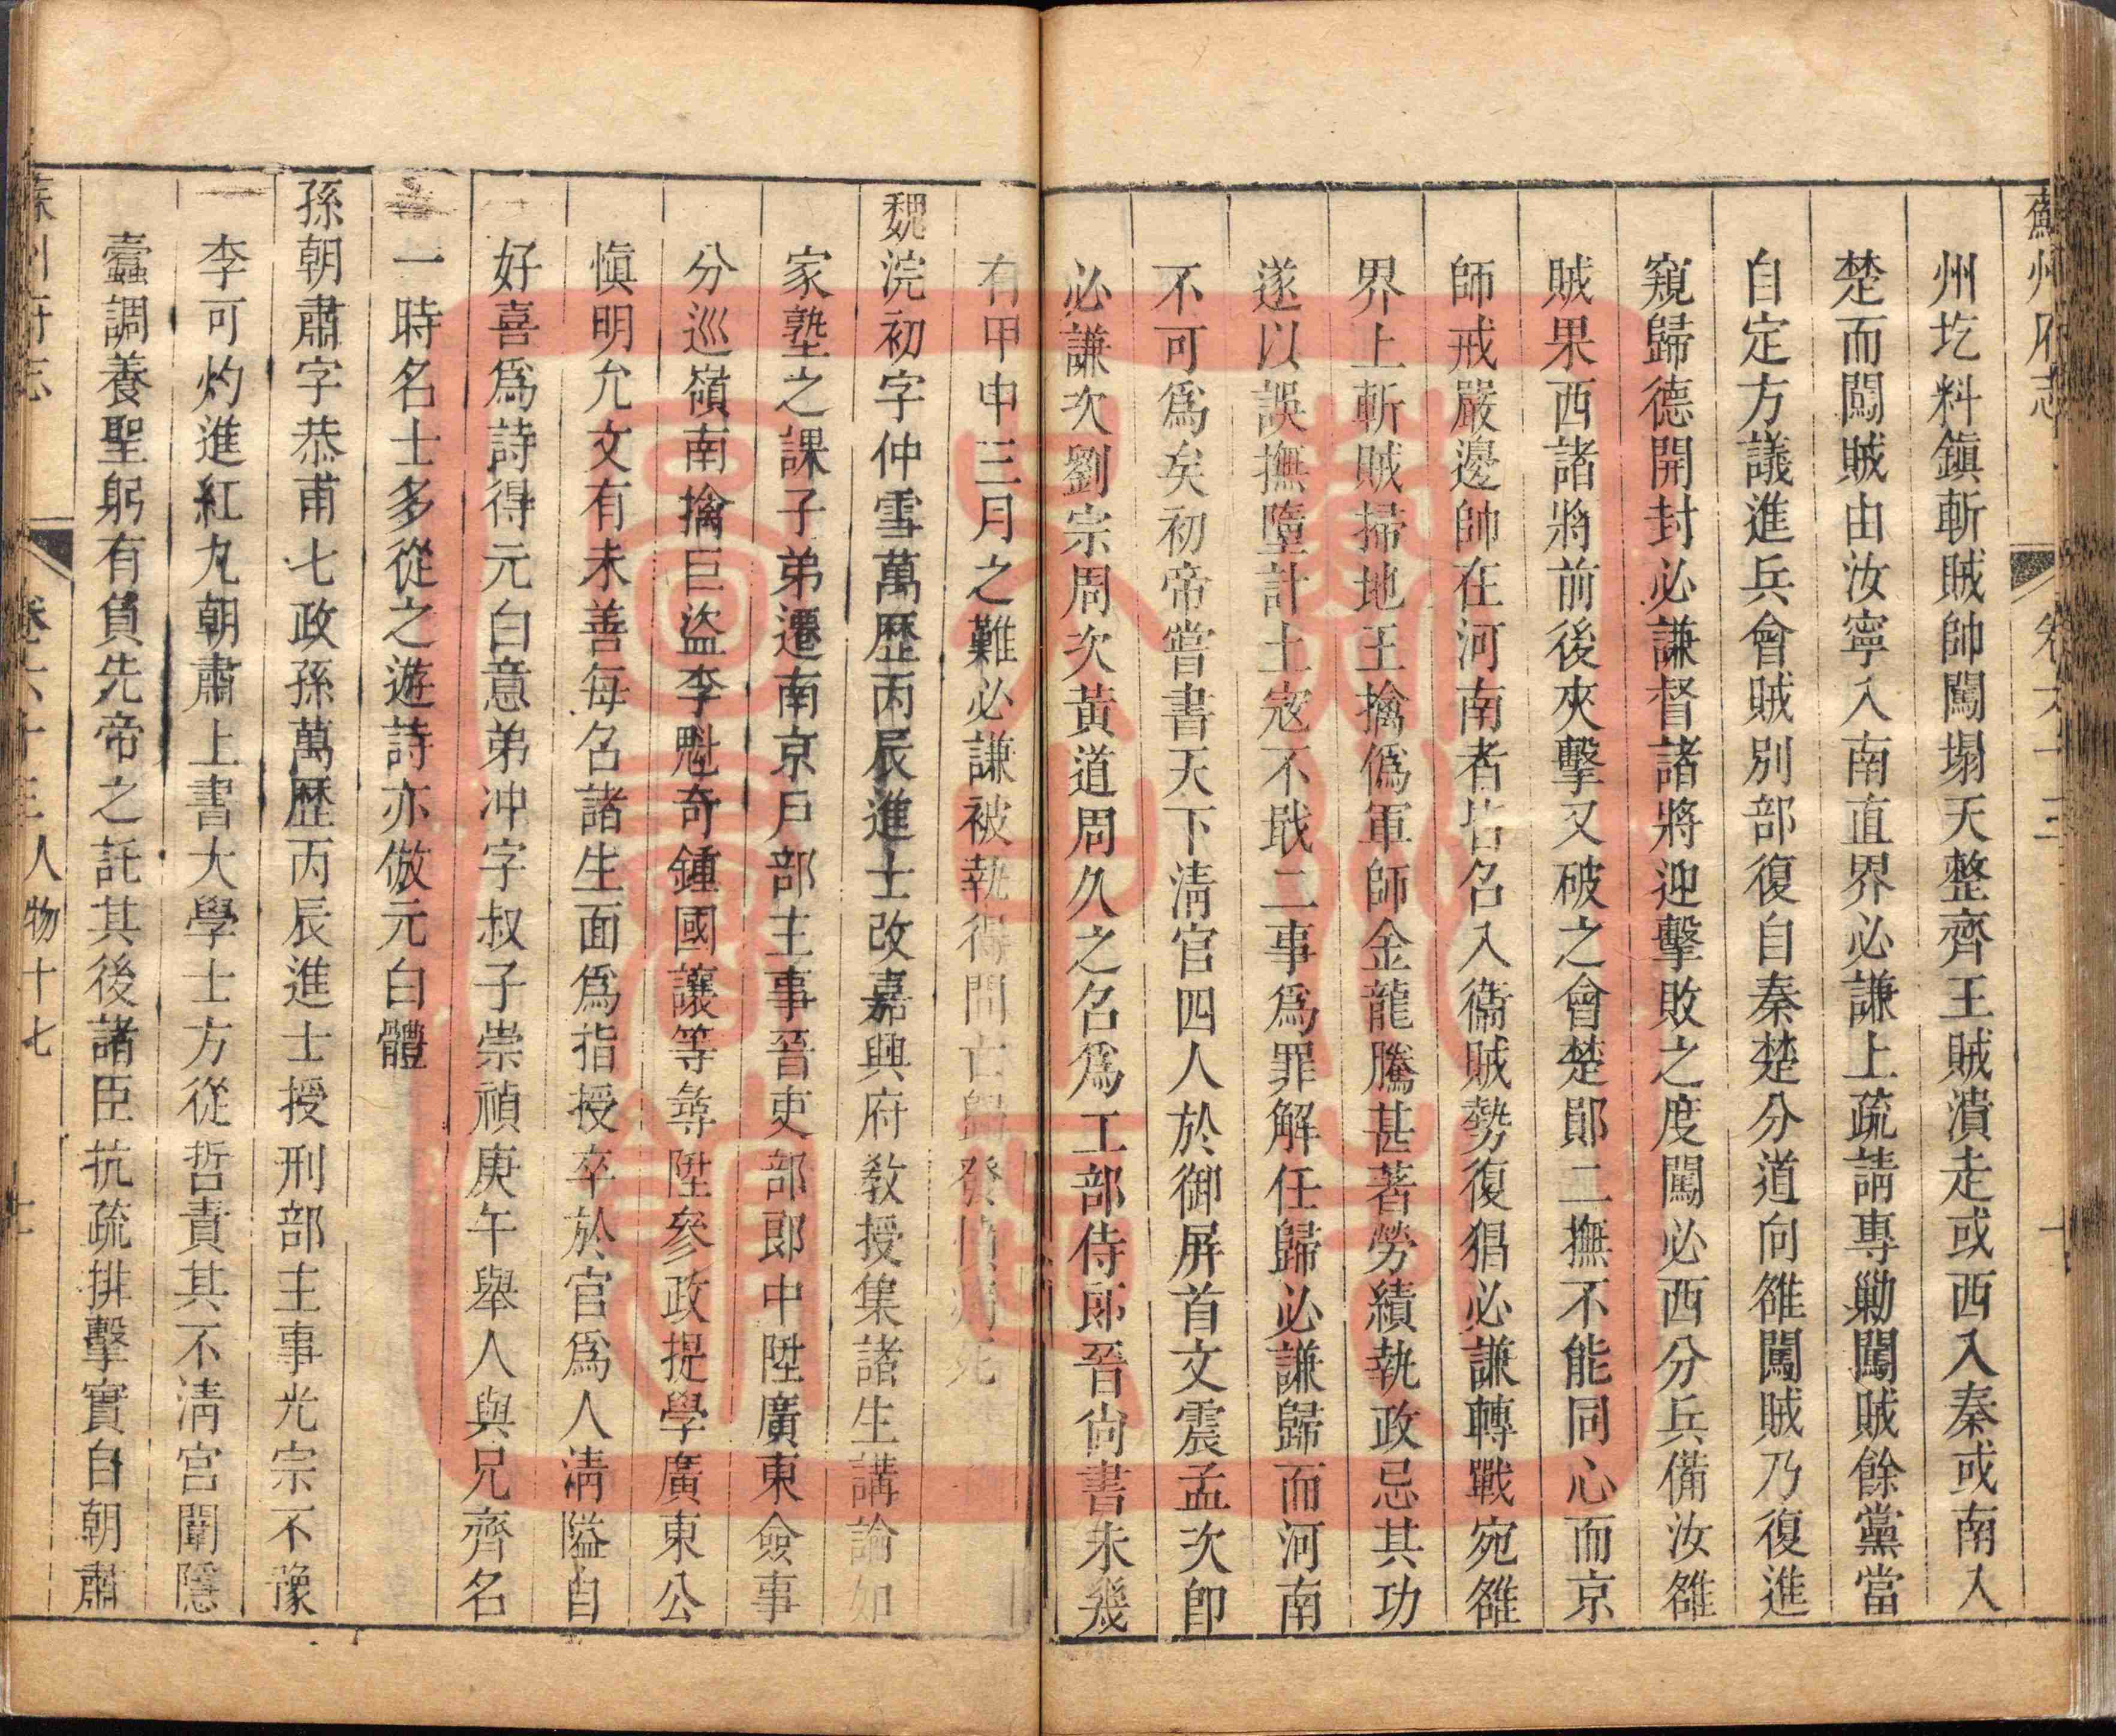 蘇州府志
卷六十三
州圪料鎮斬賊帥闖塌天整齊王賊潰走或西入秦或南入
楚而闖賊由汝寧入南直界必謙上疏請專勦闖賊餘黨當
自定方議進兵會賊別部復自秦楚分道向雒闖賊乃復進
窺歸德開封必謙督諸將迎擊敗之度闖必西分兵備汝雒
賊果西諸將前後夾擊又破之會楚鄖二撫不能同心而京
師戒嚴邊帥在河南者皆名入衞賊勢復猖必謙轉戰宛雒
界上斬賊掃地王擒僞軍師金龍騰甚著勞績執政忌其功
遂以誤撫墮計土宼不戢二事爲罪解任歸必謙歸而河南
不可爲矣初帝嘗書天下清官四人於御屏首文震孟次卽
必謙次劉宗周次黃道周久之名爲工部侍郎晉尙書未幾
有甲申三月之難必謙被執得間亡歸發憤病死
魏浣初字仲雪萬歷丙辰進士改嘉興府敎授集諸生講論如
家塾之課子弟遷南京戶部主事晉吏部郎中陞廣東僉事
分巡嶺南擒巨盜李魁奇鍾國讓等尋陞參政提學廣東公
愼明允文有未善每名諸生面爲指授卒於官爲人清隘自
好喜爲詩得元白意弟冲字叔子崇禎庚午舉人與兄齊名
一時名士多從之遊詩亦倣元白體
孫朝肅字恭甫七政孫萬歷丙辰進士授刑部主事光宗不豫
李可灼進紅丸朝肅上書大學士方從哲責其不清宮闈隱
蠹調養聖躬有負先帝之託其後諸臣抗疏排擊實自朝肅
蘇州府志
卷六十三人物十七